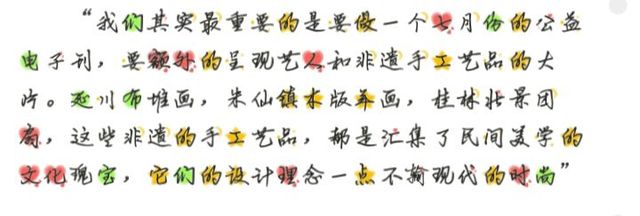 “我们其实最重要的是要做一个七月份的公益
电子刊，要额外的呈现艺人和非遗手工艺品的大
片。延川布堆画，朱仙镇木版年画，桂林壮景团
扇，这些非遗的手工艺品，都是汇集了民间美学的
文化瑰宝，它们的设计理念一点不输现代的时尚”